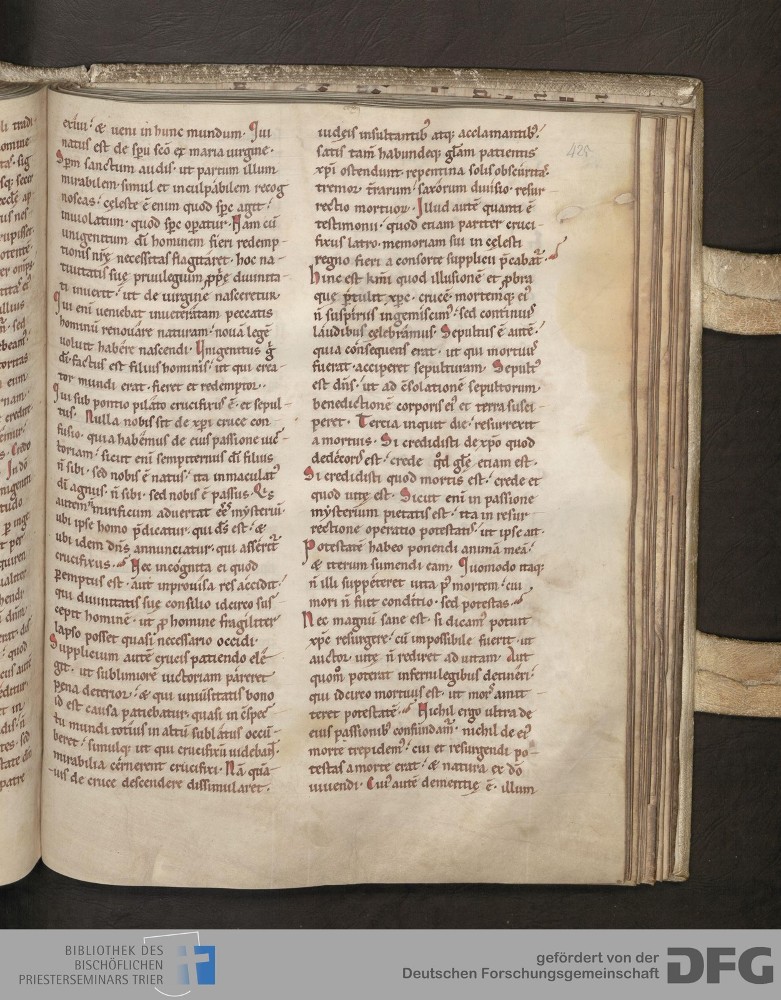 exiui · & ueni in hunc mundum · Qui
natus est de spu sco ex maria uirgine ·
Spm sanctum audis · ut partum illum
mirabilem · simul et inculpabilem recog
noscas · celeste e enim quod spc agit ·
inuiolatum · quod spc operatur · Nam cu
unigenitum di hominem fieri redemp-
tionis nre necessitas flagitaret · hoc na-
tiuitatis sue priuilegium ppe diuinita-
ti inuenit · ut de uirgine nasceretur ·
Qui eni ueniebat inueteratam peccatis
hominu renouare naturam · noua lege
uoluit habere nascendi · Unigenitus g
di · factus est filius hominis · ut qui crea-
tor mundi erat · fieret et redemptor ·
Qui sub pontio pilato crucifixus e · et sepul-
tus · Nulla nobis sit de xpi cruce con-
fusio · quia habemus de eius passione uic-
toriam · sicut eni sempiternus di filius
n sibi · sed nobis e natus · ita inmaculat
di agnus · n sibi · sed nobis e passus ·
autem mirificum aduertat ee mysteriu ·
ubi ipse homo pdicatur · qui ds est · &
ubi idem dns annunciatur · qui asserit
crucifixus · Nec incognita ei quod
peremptus est · aut inprouisa res accidit ·
qui diuinitatis sue consilio idcirco sus
cepit homine · ut p homine fragiliter
lapso posset quasi necessario occidi ·
Supplicium aute crucis patiendo ele
git · ut sublimiore uictoriam pareret
pena deterior · & qui uniuersitatis bono
id est causa patiebatur · quasi in cspec
tu mundi totius in altu sublatus occu-
beret · simulq; ut qui crucifixu uidebant ·
mirabilia cernerent crucifixi · Na qua
uis de cruce descendere dissimularet ·
iudeis insultantib atq; acclamantib ·
satis tam habundeq; glam patientis
xpi ostendunt repentina solis obscuritas ·
tremor terrarum · saxorum diuisio · resur
rectio mortuor · Illud aute quanti e
testimonii · quod etiam pariter cruci-
fixus latro · memoriam sui in celesti
regno fieri a consorte supplicii pcabat ·
Hinc est kmi quod illusione et pbra
que ptulit xpc · cruce · mortemq; ei
n suspiriis ingemiscim · sed continuis
laudibus celebramus · Sepultus e aute ·
quia consequens erat · ut qui mortuus
fuerat · acciperet sepulturam · Sepult
est dns · ut ad csolatione sepultorum ·
benedictione corporis ei et terra susci-
peret · Tercia inquit die · resurrexit
a mortuis · Si credidisti de xpo quod
dedecoris est · crede qd gle etiam est ·
Si credidisti quod mortis est · crede et
quod uite est · Sicut eni in passione
mysterium pietatis est · ita in resur
rectione operatio potestatis · ut ipse ait ·
Potestate habeo ponendi anima mea ·
& iterum sumendi eam · Quomodo itaq;
n illi suppeteret uita p mortem · cui
mori n fuit conditio · sed potestas ·
Nec magnu sane est · si dicam potuit
xpc resurgere · cu impossibile fuerit · ut
auctor uite n rediret ad uitam · Aut
quom poterat inferni legibus detineri ·
qui idcirco mortuus est · ut mors amit
teret potestate · Nichil ergo ultra de
eius passionib confundam · nichil de ei
morte trepidem · cui et resurgendi po-
testas a morte erat · & natura ex do
uiuendi · Cui aute dementie e · illum
425
BIBLIOTHEK DES
BISCHÖFLICHEN
PRIESTERSEMINARS TRIER
gefördert von der
Deutschen Forschungsgemeinschaft
DFG